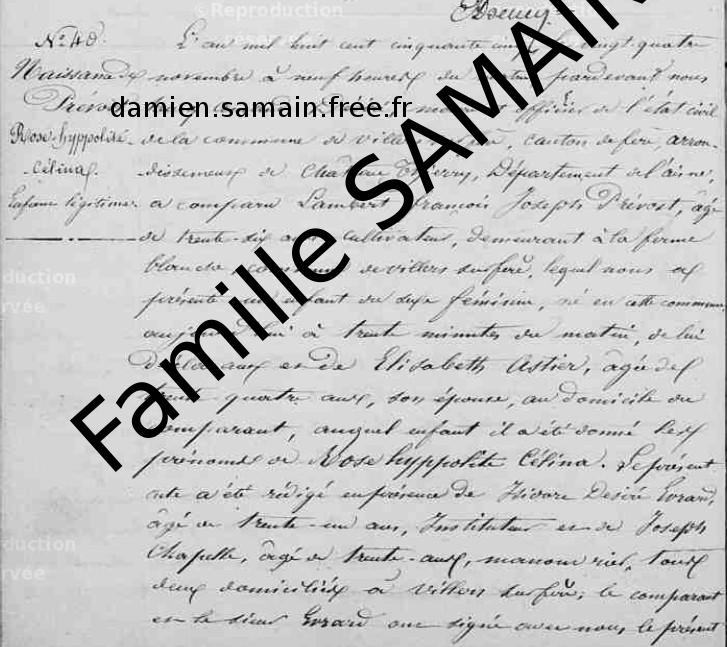 Reproduction
réservée
N° 48.
Naissance de
Prévost
Rose hyppolite
Célina.
Enfant légitime.
L'an mil huit cent cinquante cinq le vingt quatre
novembre à neuf heures du matin pardevant nous
officier de l'état civil
de la commune de villers sur fère, canton de fère, arron-
dissement de Chateau Thierry, Département de l'aisne,
a comparu Lambert françois Joseph Prévost, âgé
de trente-six ans, cultivateur, demeurant à la ferme
blanche, commune de villers sur fère, lequel nous a
présenté un enfant du sexe féminin, né en cette commune
aujourd'hui à trente minutes du matin, de lui
déclarant et de Elisabeth Astier, âgée de
trente quatre ans, son épouse, au domicile du
comparant, auquel enfant il a été donné les
prénoms de Rose hyppolite Célina. Le présent
acte a été rédigé en présence de Isidore Désiré Evrard,
âgé de trente-un ans, Instituteur et de Joseph
Chapelle, âgé de trente-ans, manouvrier, tous
deux domiciliés à Villers sur fère; le comparant
et le sieur Evrard ont signé avec nous le présent
damien.samain.free.fr
Famille SAMAIN
duction
rvée
duction
rvée